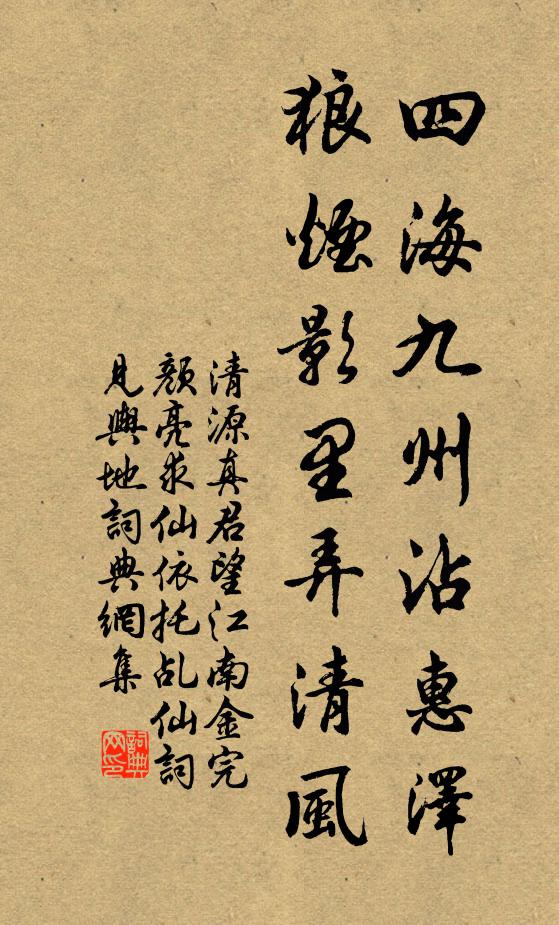 四海九州沾惠澤
狼煙影里弄清風
清源真君望江南金完
顏亮求仙依托乩仙詞
見輿地詞典網集
詞典
網印